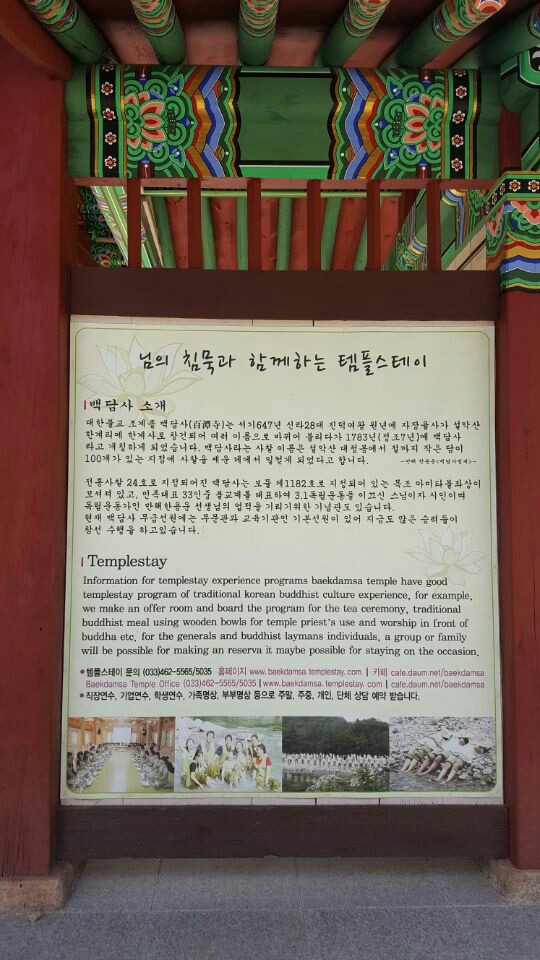 님의 침묵과 함께하는 템플스테이
백담사 소개
대한불교 조계종 백담사(百潭寺)는 서기647년 신라28대 진덕여왕 원년에 자장율사가 설악산
한계리에 한계사로 창건되어 여러 이름으로 바뀌어 불리다가 1783년(정조7년)에 백담사
라고 개칭하게 되었습니다. 백담사라는 사찰 이름은 설악산 대청봉에서 절까지 작은 담이
100개가 있는 지점에 사찰을 세운 데에서 일컫게 되었다고 합니다.
전통사찰 24호로 지정되어진 백담사는 보물 제1182호로 지정되어 있는 목조 아미타불좌상이
모셔져 있고, 민족대표 33인중 불교계를 대표하여 3.1독립운동을 이끄신 스님이자 시인이며
독립운동가인 만해한용운 선생님의 업적을 기리기위한 기념관도 있습니다.
현재 백담사 무금선원에는 무문관과 교육기관인 기본선원이 있어 지금도 많은 승려들이
참선 수행을 하고있습니다.
Templestay
Information for templestay experience programs baekdamsa temple have good
templestay program of traditional korean buddhist culture experience, for example,
we make an offer room and board the program for the tea ceremony, traditional
buddhist meal using wooden bowls for temple priest's use and worship in front of
buddha etc. for the generals and buddhist laymans individuals, a group or family
will be possible for making an reserva it maybe possible for staying on the occasion.
•템플스테이 문의 (033)462-5565/5035 홈페이지 www.baekdamsa.templestay.com | 카페 cafe.daum.net/baekdamsa
Baekdamsa Temple Office (033)462-5565/5035 | www.baekdamsa.templestay.com | cafe.daum.net/baekdamsa
•직장연수, 기업연수, 학생연수, 가족명상, 부부명상 등으로 주말, 주중, 개인, 단체 상담 예약 받습니다.